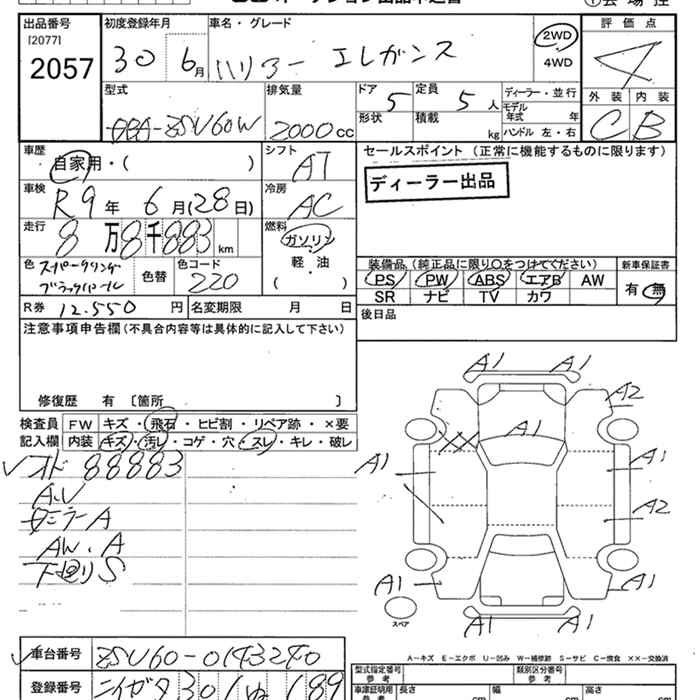 出品番号 初度登録年月 車名・グレード 2WD 評価点
[2077] 30 6月 ハリアー エレガンス 4WD 4
2057
型式 排気量 ドア 定員 ディーラー・並行 外装 内装
DBA-ZSU60W 2000cc 5 5人 モデル年式 年 C B
形状 積載 kg ハンドル 左・右
車歴 自家用・( ) シフト AT セールスポイント (正常に機能するものに限ります)
車検 R9年 6月(28日) 冷房 AC ディーラー出品
走行 8万8千883km 燃料 ガソリン
軽・油
( )
色 スパークリングブラックパール 色替 色コード 220
装備品(純正品に限り○をつけてください) 新車保証書
PS PW ABS エアB AW 有・無
SR ナビ TV カワ
R券 12.550円 名変期限 月 日 後日品
注意事項申告欄(不具合内容等は具体的に記入して下さい)
修復歴 有 〔箇所 〕
検査員 FW キズ・飛石・ヒビ割・リペア跡・×要
記入欄 内装 キズ・汚レ・コゲ・穴・スレ・キレ・破レ
オド 88883
A.V
ミラーA
AW.A
下廻りS
A1 A1
A2
A1
XX
A1 A1
A2
A1 A1
A1 A1
スペア
A-キズ E-エクボ U-凹み W-補修跡 S-サビ C-腐食 ××-交換済
車台番号 ZSU60-0143240
型式指定番号 参考 類別区分番号 参考
登録番号 ニイガタ 301 ぬ 189
車庫証明用 参考 長さ cm 幅 cm 高さ cm